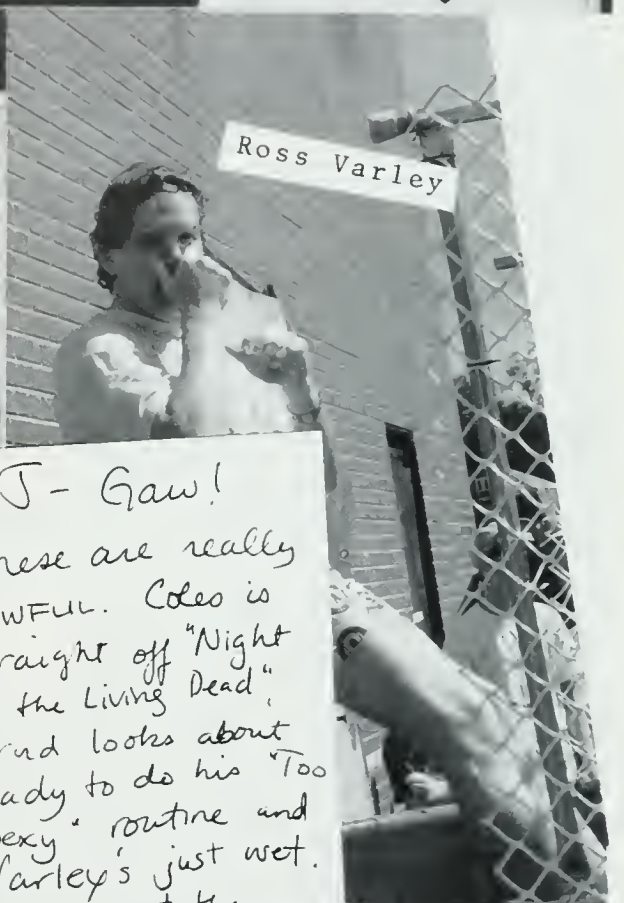 Ross Varley
J- Gaw!
hese are really
WFUL. Coleo is
raight off "Night
the Living Dead".
rnd looks about
ady to do his "Too
exy" routine and
Varley's just wet.